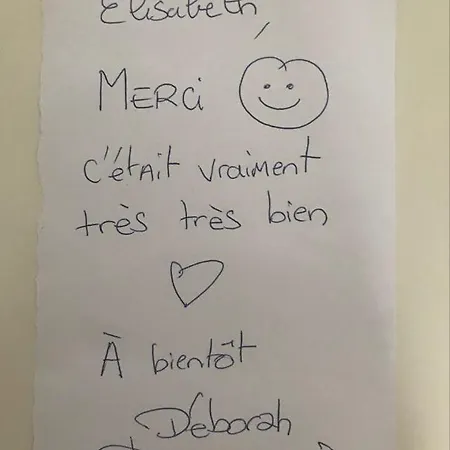 Elisabeth
MERCi
c'était vraiment
très très bien
À bientôt
Déborah